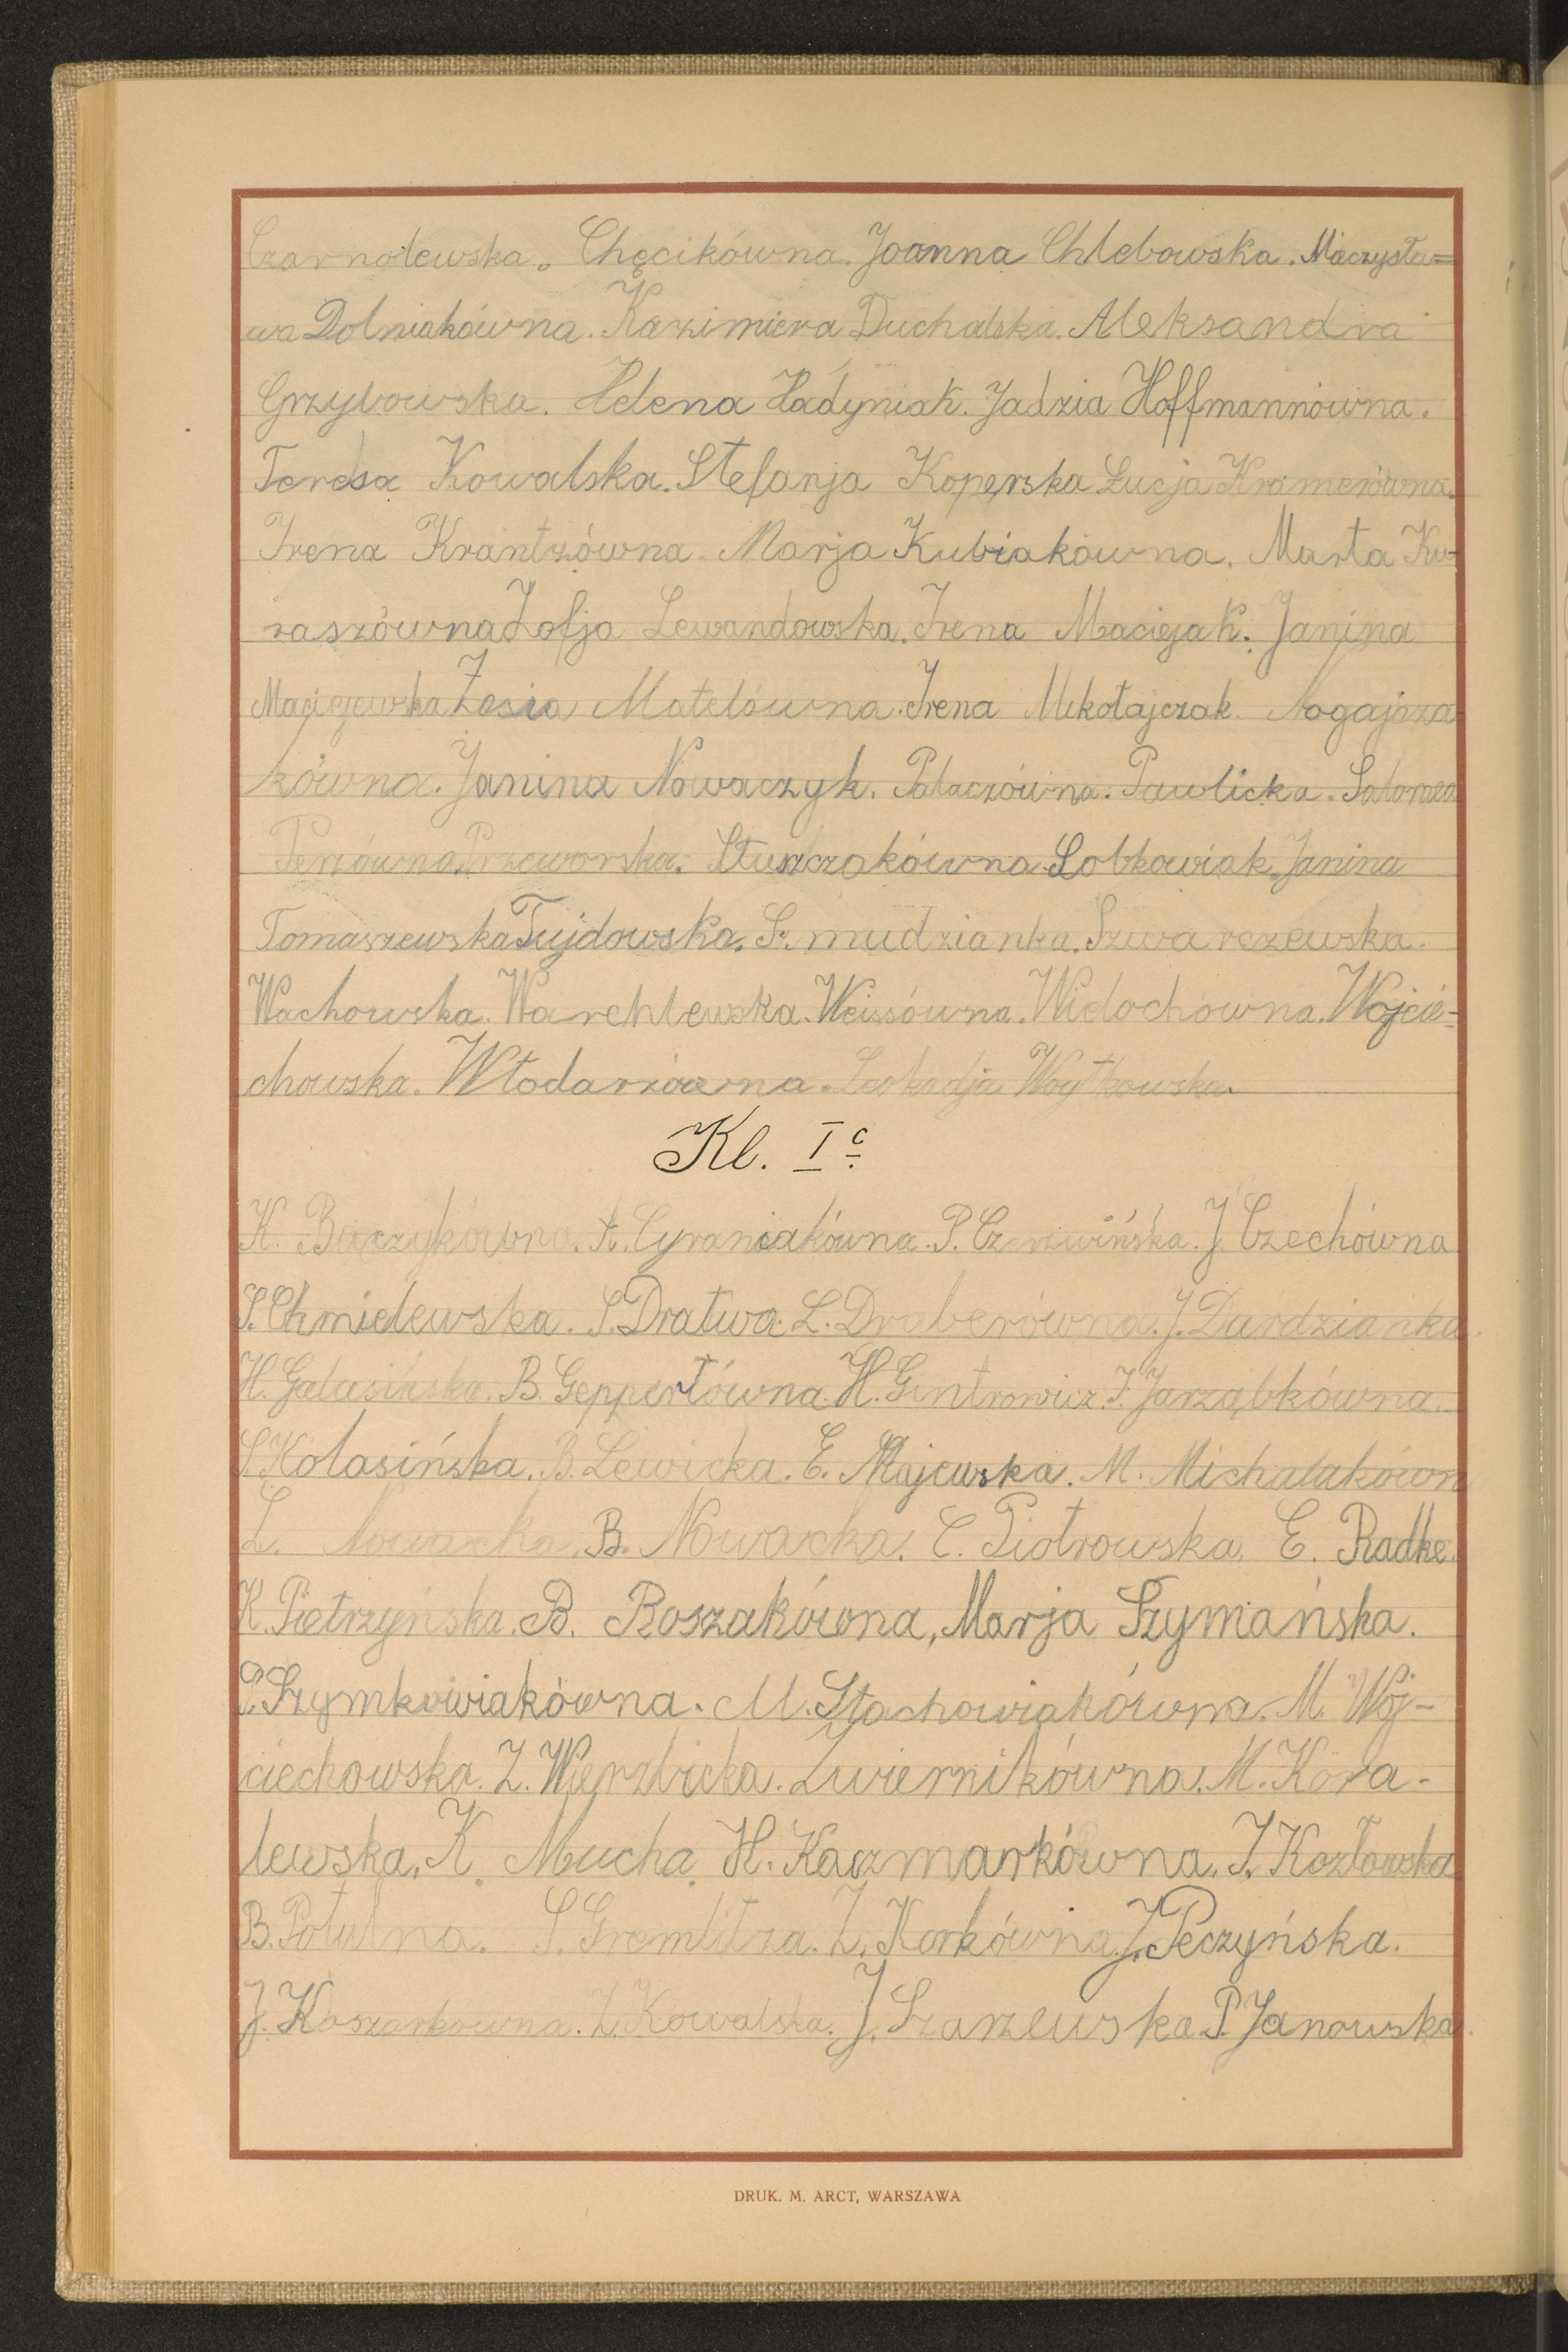 Czarnolewska. Chęcikówna. Joanna Chlebowska. Mieczysła=
wa Dolniakówna. Kazimiera Duchalska. Aleksandra
Grzybowska. Helena Hadyniak. Jadzia Hoffmannówna.
Teresa Kowalska. Stefanja Koperska Łucja Kramerówna.
Irena Krantzówna. Marja Kubiakówna. Marta Ku-
raszówna Zofja Lewandowska. Irena Maciejak. Janina
Maciejewska Zosia Matelówna. Irena Mikołajczak. Nogajcza-
kówna. Janina Nowaczyk. Palaczówna. Pawlicka. Salomea
Przeworska. Słuszczakówna. Sobkowiak. Janina
Tomaszewska Tujdowska. Szmudzianka. Szwarczewska.
Wachowska. Warchlewska. Weissówna. Widochówna. Wojcie-
chowska. Włodarzówna. Leokadja Woytkowska.
Kl. I c
K. Bączykówna. A. Cyraniakówna. P. Czerwińska. J. Czechówna
S. Chmielewska. S. Dratwa. L. Draberówna. J. Dardzianka.
H. Galasińska. B. Geppertówna. H. Gintrowicz. I. Jarząbkówna.
S. Kolasińska. B. Lewicka. E. Majewska. M. Michalakówn
L. Nowacka. B. Nowacka. C. Piotrowska. E. Radke.
K. Pietrzyńska. B. Roszakówna, Marja Szymańska.
P. Szymkowiakówna. M. Stachowiakówna. M. Woj-
ciechowska. Z. Wierzbicka. Zwiernikówna. M. Kora-
lewska. K. Mucha. H. Kaczmarkówna. I. Kozłowska
B. Potulna. S. Gremlitza. Z. Korkówna. J. Peczyńska.
J. Koszarkówna. Z. Kowalska. J. Szarzewska P. Janowska.
DRUK. M. ARCT, WARSZAWA